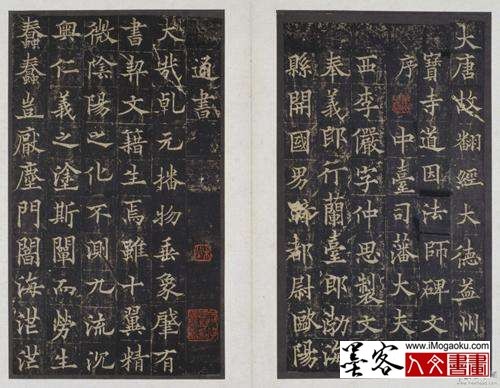 大唐故翻經大德益州
寶寺道因法師碑文
序 中臺司藩大夫
西李儼字仲思製文
奉義郎行蘭臺郎渤海
縣開國男騎都尉歐陽
通書
大哉乾元播物垂象肇有
書契文籍生焉雖十翼精
微陰陽之化不測九流沉
奧仁義之塗斯闡而勞生
蠢蠢豈厭塵門閱海茫茫
墨客 www.iMogaoku.com
人文書畫